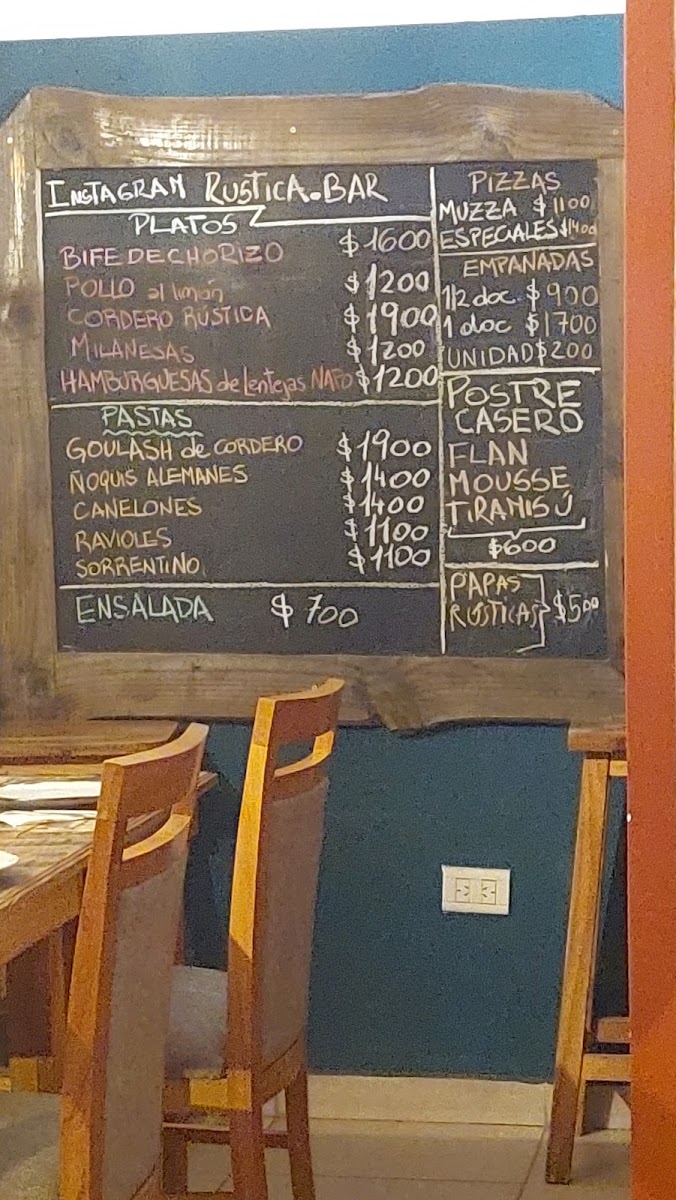 INSTAGRAM RUSTICA.BAR
PLATOS
BIFE DE CHORIZO $1600
POLLO al limón $1200
CORDERO RÚSTICA $1900
MILANESAS $1200
HAMBURGUESAS de lentejas NAPO $1200
PASTAS
GOULASH de CORDERO $1900
ÑOQUIS ALEMANES $1400
CANELONES $1400
RAVIOLES $1100
SORRENTINO $1100
ENSALADA $700
PIZZAS
MUZZA $1100
ESPECIALES $1400
EMPANADAS
1/2 doc. $900
1 doc $1700
UNIDAD $200
POSTRE
CASERO
FLAN
MOUSSE
TIRAMISÚ
$600
PAPAS
RÚSTICAS $500